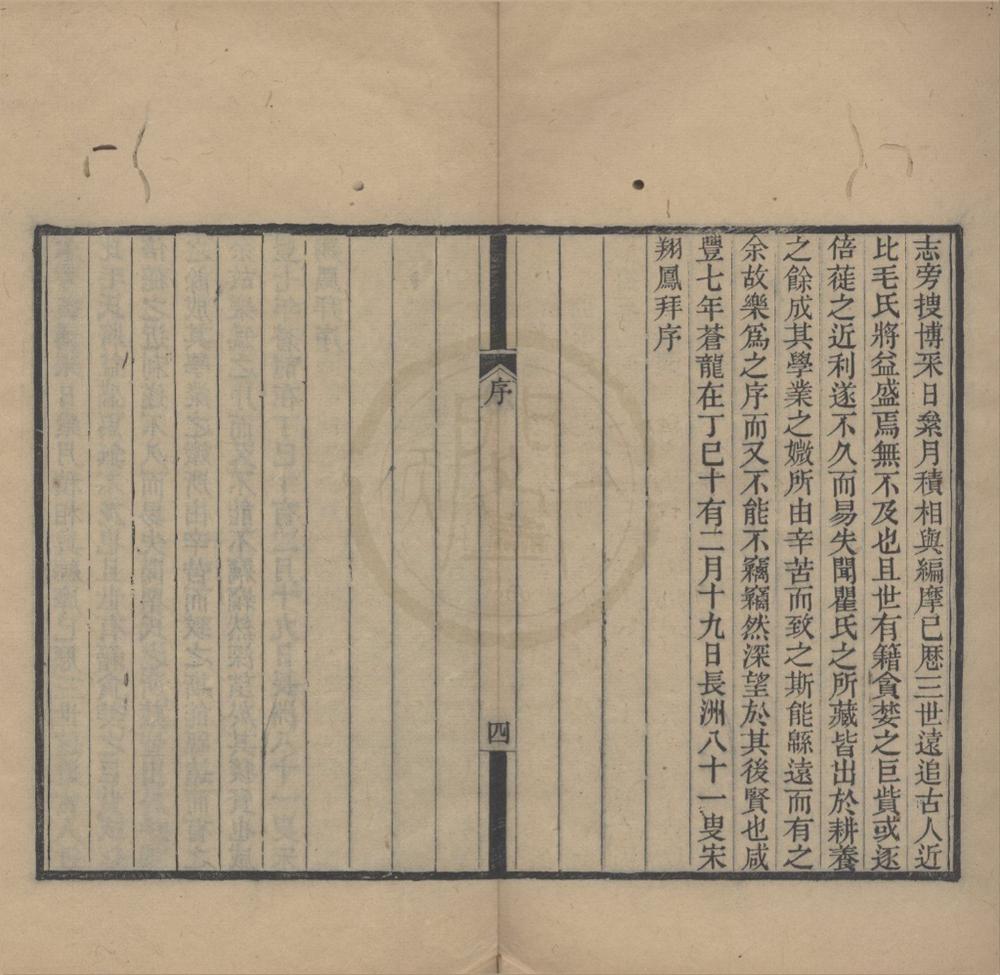 志旁搜博采日絫月積相與編摩已厯三世遠追古人近
比毛氏將益盛焉無不及也且世有籍貪婪之巨貲或逐
倍蓰之近利遂不久而易失聞瞿氏之所藏皆出於耕養
之餘成其學業之媺所由辛苦而致之斯能緜遠而有之
余故樂爲之序而又不能不竊竊然深望於其後賢也咸
豐七年蒼龍在丁巳十有二月十九日長洲八十一叟宋
翔鳳拜序
序
四